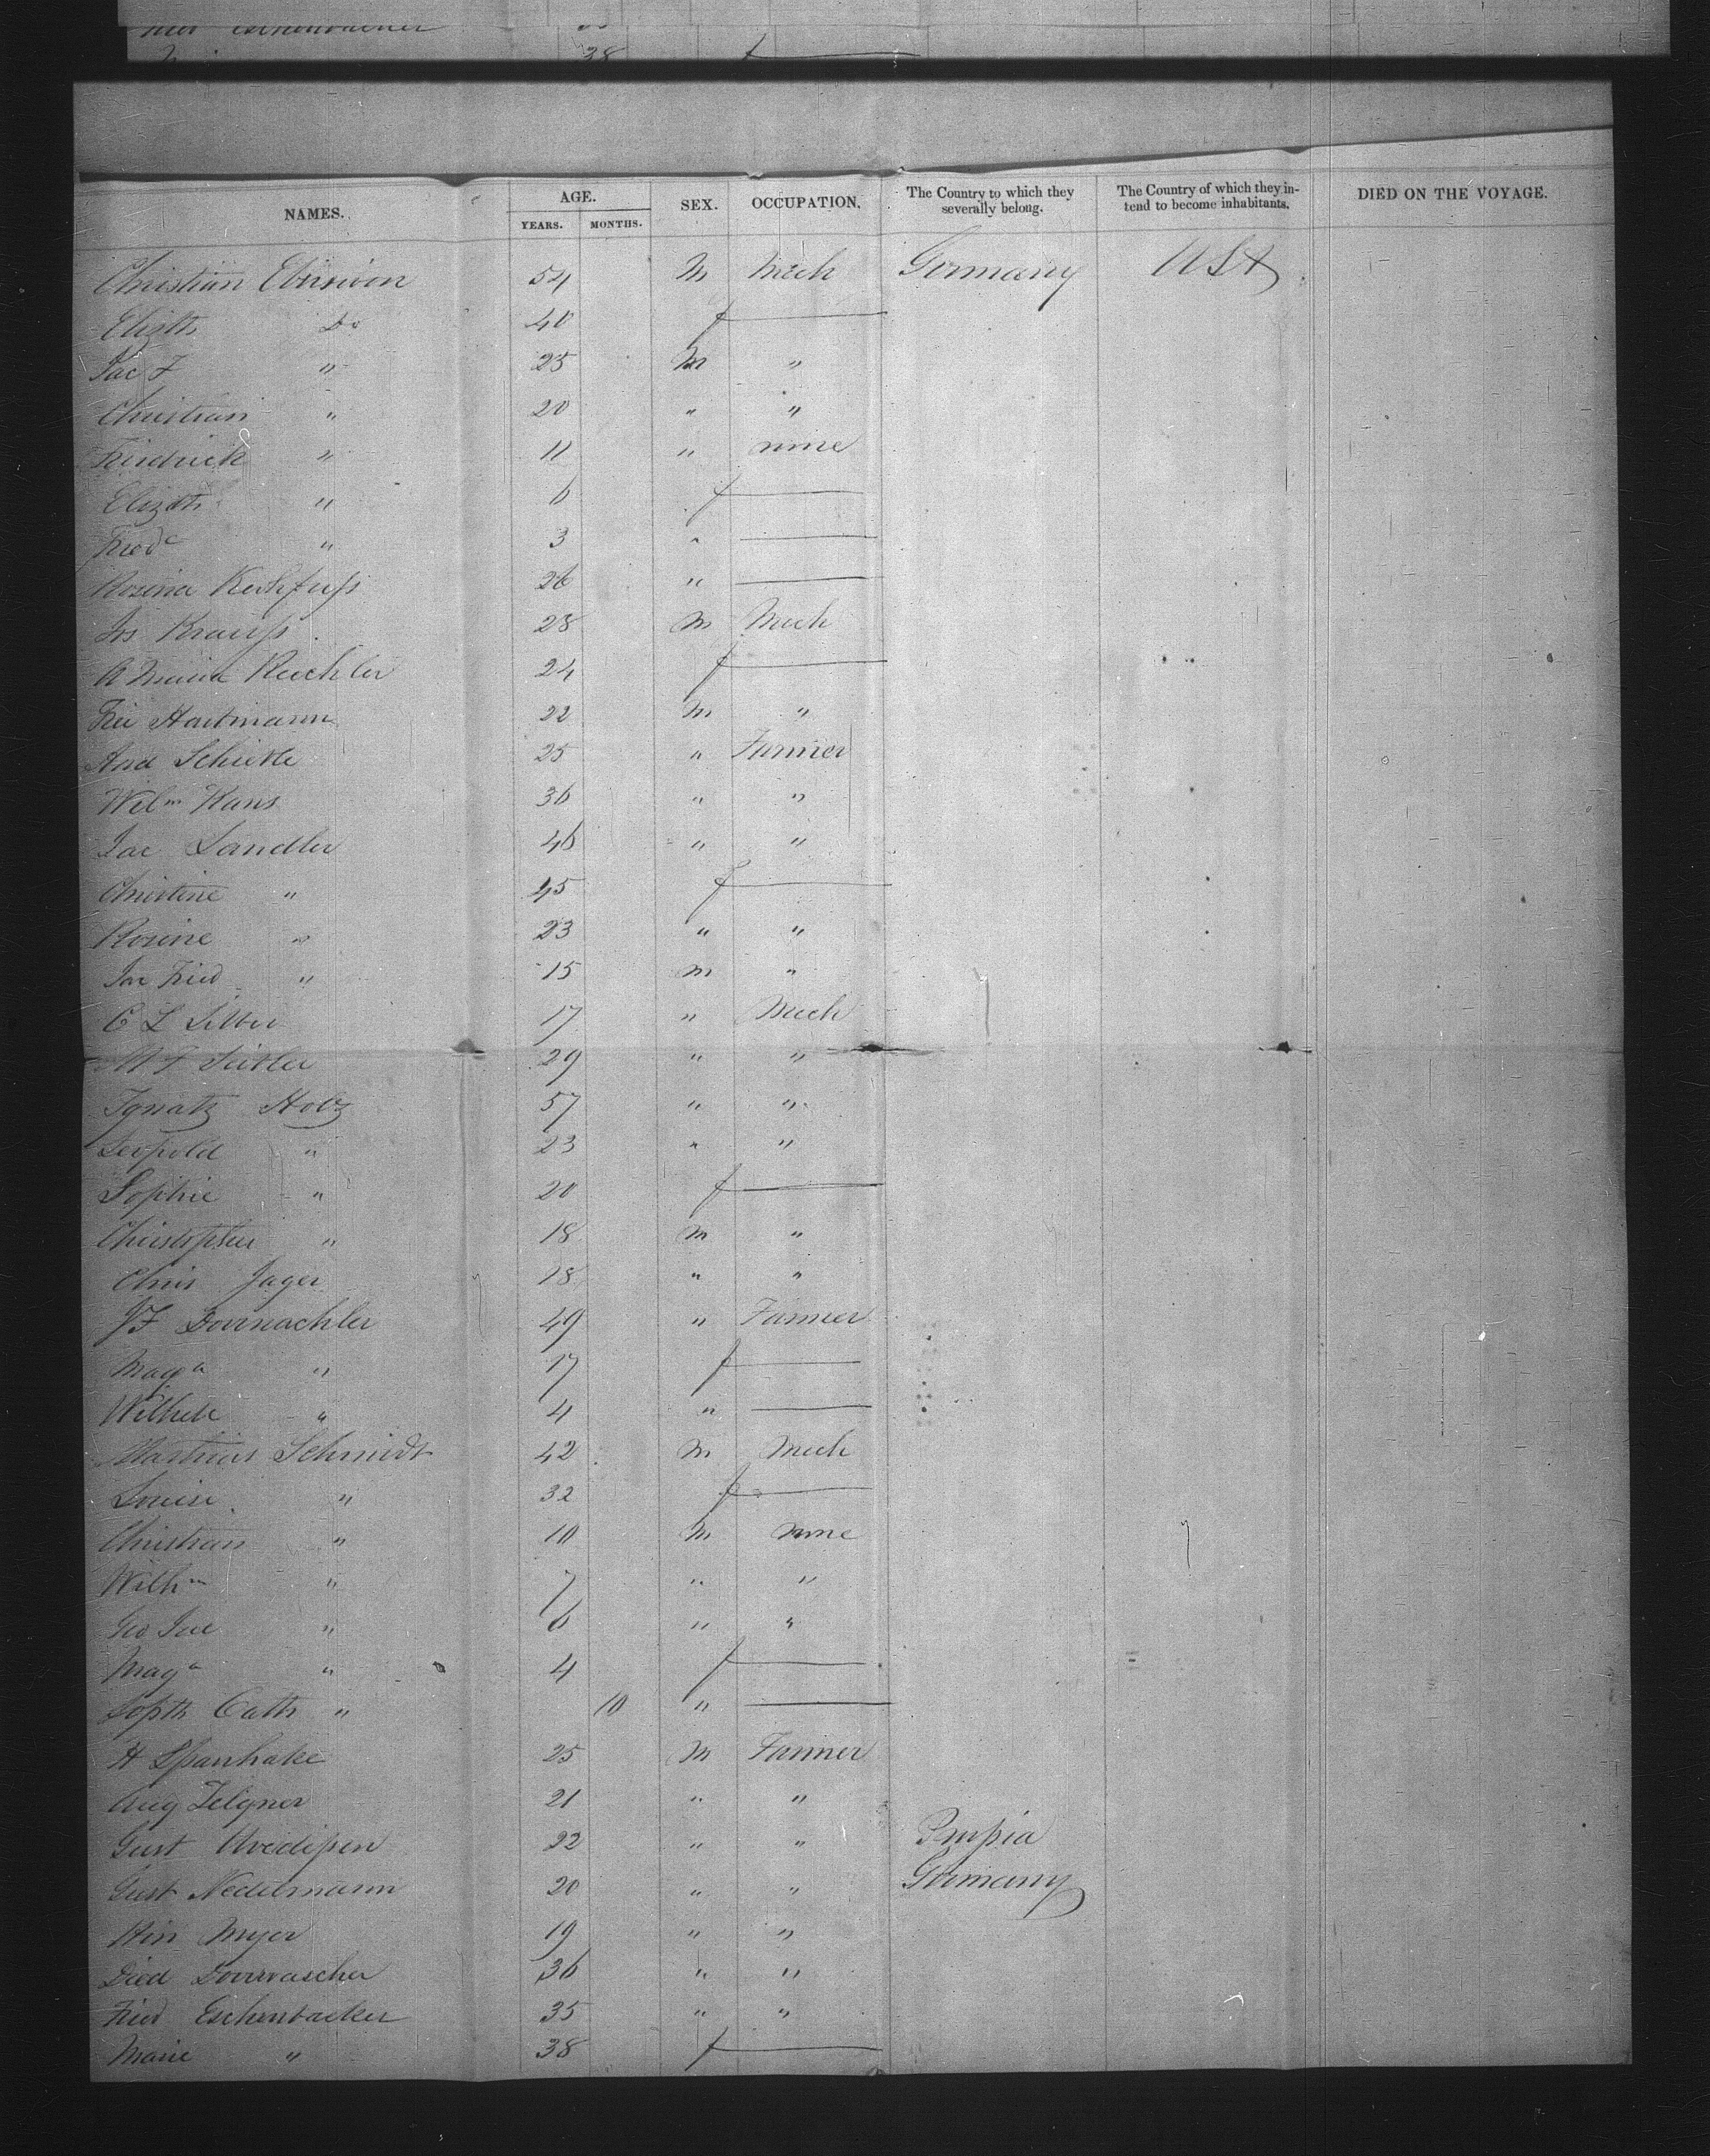 38
NAMES. AGE. YEARS. MONTHS. SEX. OCCUPATION. The Country to which they severally belong. The Country of which they intend to become inhabitants. DIED ON THE VOYAGE.
Christian 54 M Mech Germany USA
Elizth Do 40 f
Jac F " 25 M "
Christian " 20 " "
Friedrick " 11 " none
Elizth " 6 f
Fred c " 3 "
Rosina 26 "
Jos Krauss 28 M Mech
A Maria Kuchler 24 f
Fri Hartmann 22 M "
And Schietle 25 " Farmer
Wilm Kans 36 " "
Jac Sandler 46 " "
Christine " 45 f
Rosine " 23 " "
Jac Fried " 15 M "
C L Silber 17 " Mech
M F 29 " "
Ignatz Holz 57 " "
Leopold " 23 " "
Sophie " 20 f
Christopher " 18 M "
Chris Jager 18 " "
J F Dornachler 49 " Farmer
Maga " 17 f
Wilhele " 4 "
Mathias Schmidt 42 M Mech
Louise " 32 f
Christian " 10 M none
Wilhm " 7 " "
Geo Jac " 6 " "
Maga " 4 f
Sopth Cath " 10 "
H Spanhake 25 M Farmer
Aug Zelgner 21 " "
Gust 22 " " Prussia
Gust Nedelmann 20 " " Germany
Hin Myer 19 " "
Died 36 " "
Fried Eschenbacker 35 " "
Marie " 38 f